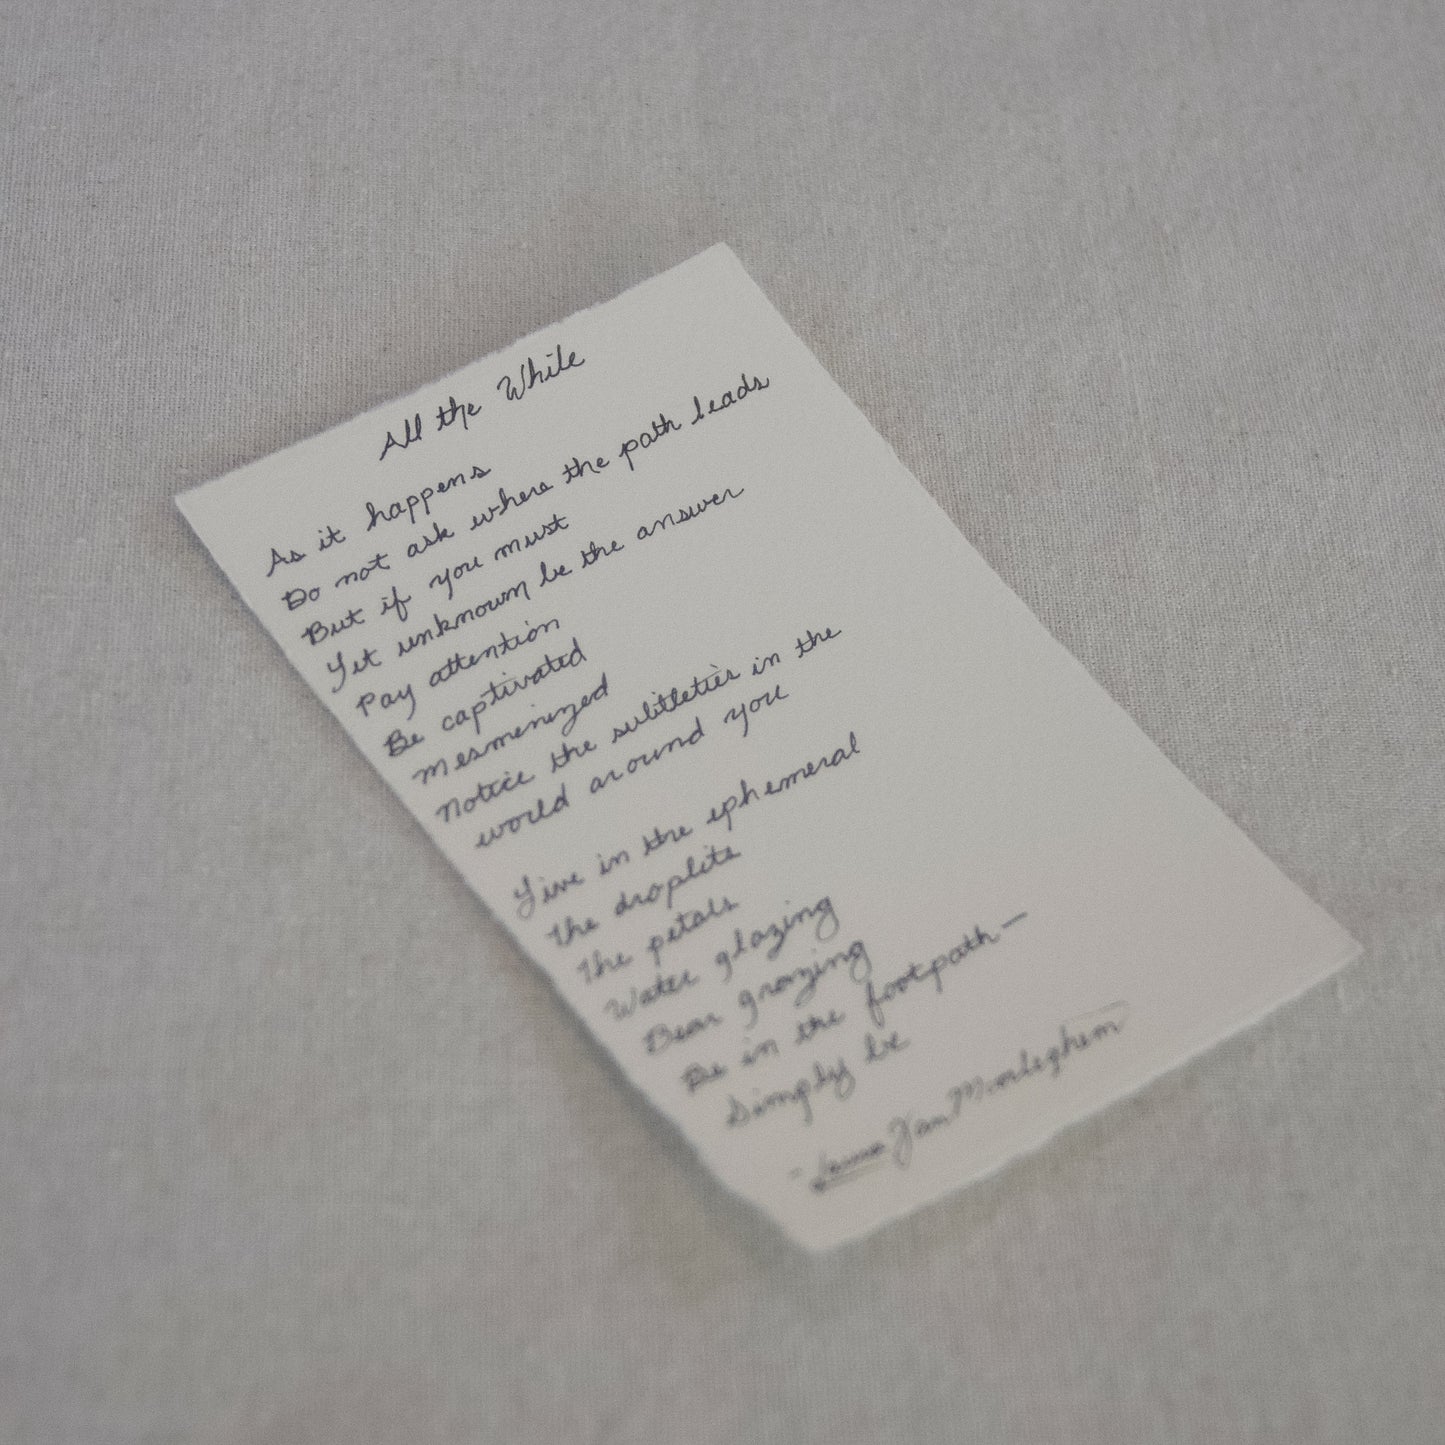 All the While
As it happens
Do not ask where the path leads
But if you must
Let unknown be the answer
Pay attention
Be captivated
Mesmerized
Notice the subtleties in the
world around you
Live in the ephemeral
The droplets
The petals
Water glazing
Bear grazing
Be in the footpath—
Simply be
- Van